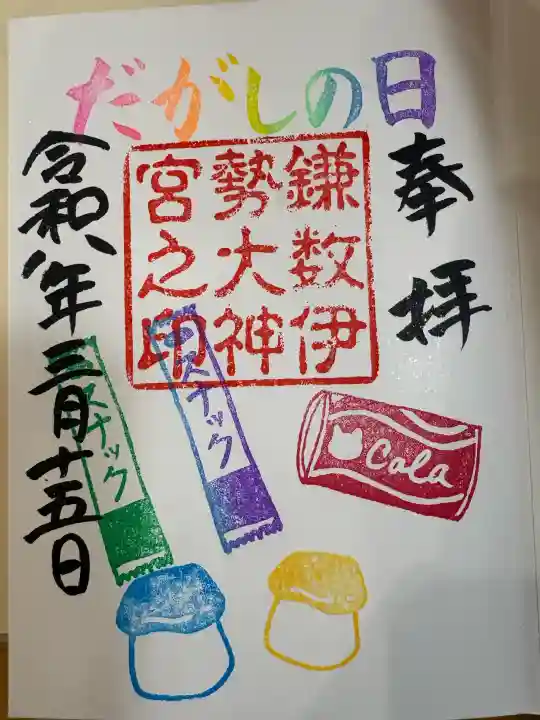 だがしの日
奉拝
鎌数伊
勢大神
宮之印
令和八年三月十五日
スナック
スナック
Cola